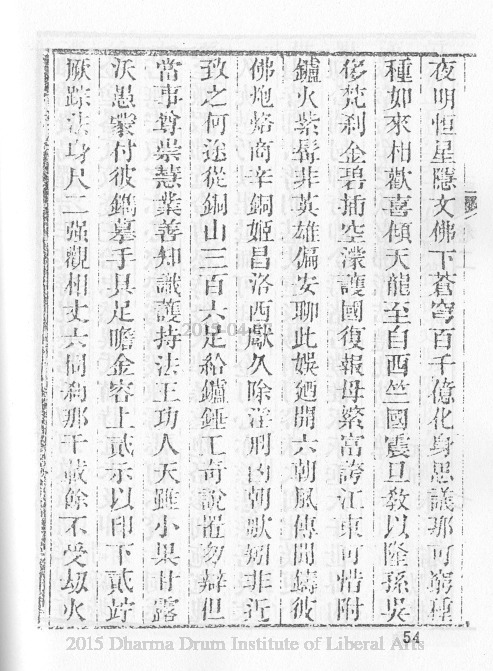 夜明恒星隱文佛下蒼穹百千億化身思議那可窮種
種如來相歡喜傾天龍至自西竺國震旦教以隆孫吳
侈梵刹金碧插空濛護國復報母繁富誇江東可惜附
鑪火紫髯非英雄偏安聊此娛廼開六朝風傳聞鑄彼
佛炮烙商辛銅姬昌洛西獻久除淫刑凶朝歌朔非近
致之何途從銅山三百六足給鑪錘工奇說置勿辯但
當事尊崇慧業善知識護持法王功人天雖小果甘露
沃愚蒙付彼鐫摹手具足瞻金容上貳示以印下貳跨
厥踪法身尺二强觀相丈六同刹那千載餘不受劫火
54
2015 Dharma Drum Institute of Liberal Arts